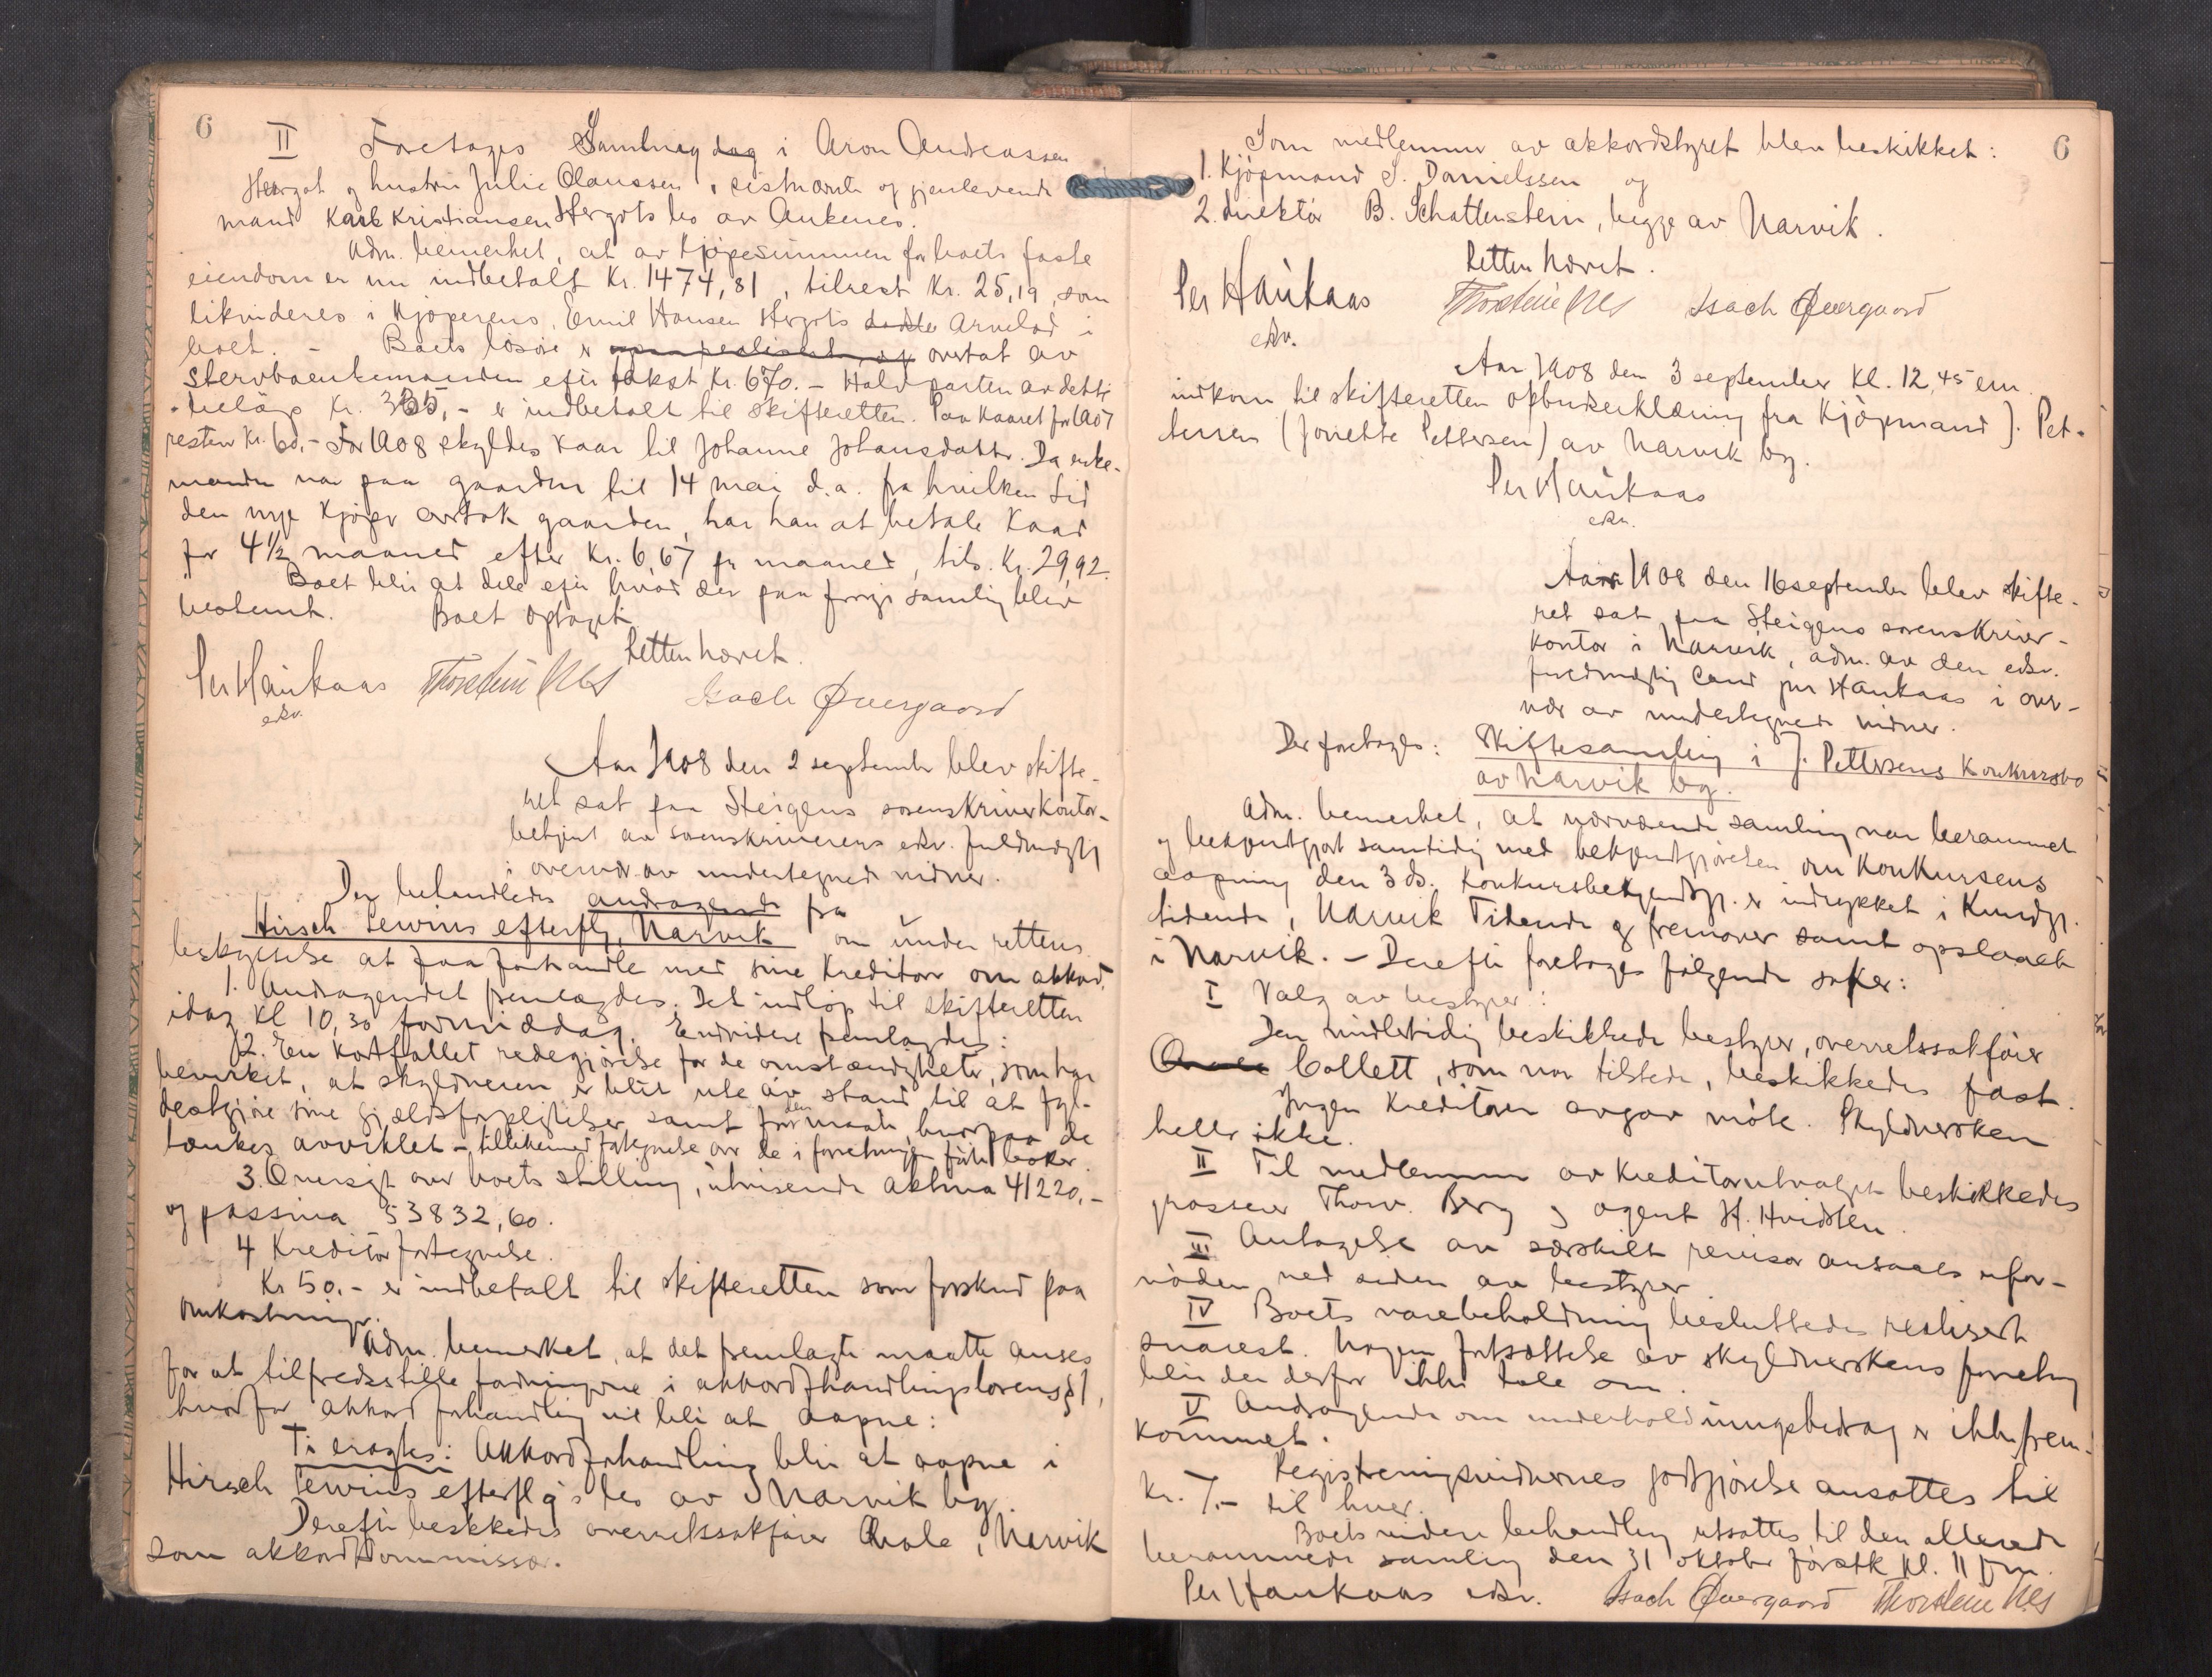 6
II Foretages Samling dag i Aron Andreassen
Hergot og hustru Julie Olaussen, sistnævnte og gjenlevende
mand Karl Kristiansen Hergots bo av Ankenes.
Adm. bemerket, at av kjøpesummen for boets faste
eiendom er nu indbetalt Kr. 1474,81, tilrest Kr. 25,19, som
likvideres i kjøperens, Emil Hansen Hergots arvelod i
boet. - Boets løsøre er overtat av
stervboenkemanden efter takst Kr. 670.- Halvparten av dette
beløp Kr. 335,- er indbetalt til skifteretten. Paa kaaret for 1907
rester Kr. 60,- For 1908 skyldes kaar til Johanne Johansdatter. Da enke-
manden var paa gaarden til 14 mai d.a. fra hvilken tid
den nye kjøper overtok gaarden, har han at betale kaar
for 4½ maaned efter Kr. 6,67 pr maaned, tils. Kr. 29,92.
Boet blir at dele efter hvad der paa forrige samling blev
bestemt. Boet optaget
Retten hævet.
Per Haukaas Thorstein Nes Isach Øvergaard
edsv.
Aar 1908 den 2 september blev skifte-
ret sat paa Steigens sorenskriverkontor-
betjent av sorenskriverens edsv. fuldmægtig
i overvær av undertegnede vidner.
Der behandledes andragende fra
Hirsch Lewins efterflg, Narvik om under rettens
beskyttelse at faa forhandle med sine kreditorer om akkord.
1. Andragendet fremlagdes. Det indløp til skifteretten
idag kl 10,30 formiddag. Endvidere fremlagdes:
2. En kortfattet redegjørelse for de omstændigheter, som har
bevirket, at skyldneren er blit ute av stand til at fyl-
destgjøre sine gjældsforpligtelser samt for den maate, hvorpaa de
tænkes avviklet - tillikemed fortegnelse over de i forretningen førte bøker.
3. Oversigt over boets stilling, utvisende aktiva 41220,-
og passiva 53832,60.
4 Kreditorfortegnelse.
Kr 50.- er indbetalt til skifteretten som forskud paa
omkostninger.
Adm. bemerket, at det fremlagte maatte anses
for at tilfredsstille fordringerne i akkordforhandlingslovens § 1,
hvorfor akkordforhandling vil bli at aapne:
Ti eragtes: Akkordforhandling blir at aapne i
Hirsch Lewins efterflg's bo av Narvik by.
Derefter beskikkedes overretssakfører Qvale, Narvik
som akkordkommissær.
6
Som medlemmer av akkordstyret blev beskikket:
1. Kjøpmand S. Danielssen og
2. direktør B. Schattenstein, begge av Narvik.
Retten hævet.
Per Haukaas Thorstein Nes Isach Øvergaard
edsv.
Aar 1908 den 3 september kl. 12,45 em
indkom til skifteretten opbudserklæring fra kjøpmand J. Pet-
tersen (Jonette Pettersen) av Narvik by.
Per Haukaas
edsv.
Aar 1908 den 16 september blev skifte-
ret sat paa Steigens sorenskriver-
kontor i Narvik, adm. av den edsv.
fuldmægtig cand jur Haukaas i over-
vær av undertegnede vidner.
Der foretoges: Skiftesamling i J. Pettersens konkursbo
av Narvik by.
Adm. bemerket, at nærværende samling var berammet
og bekjendtgjort samtidig med bekjendtgjørelsen om konkursens
aapning den 3 ds. Konkursbekjendtgj. er indrykket i Kundgj.
tidende, Narvik Tidende og Fremover samt opslaaet
i Narvik. - Derefter foretoges følgende saker:
I Valg av bestyrer:
Den midlertidig beskikkede bestyrer, overretssakfører
Qvale Collett, som var tilstede, beskikkedes fast.
Ingen kreditorer avgav møte. Skyldnersken
heller ikke.
II Til medlemmer av kreditorutvalget beskikkedes
grosserer Thorv. Berg og agent H. Hvidsten.
III Antagelse av særskilt revisor ansaaes ufor-
nøden ved siden av bestyrer
IV Boets varebeholdning besluttedes realisert
snarest. Nogen fortsættelse av skyldnerskens forretning
blir der derfor ikke tale om.
V Andragende om underholdningsbidrag er ikke frem-
kommet.
Registreringsvidnernes godtgjørelse ansattes til
Kr. 7.- til hver.
Boets videre behandling utsattes til den allerede
berammede samling den 31 oktober førstk kl. 11 fm.
Per Haukaas edsv. Isach Øvergaard Thorstein Nes